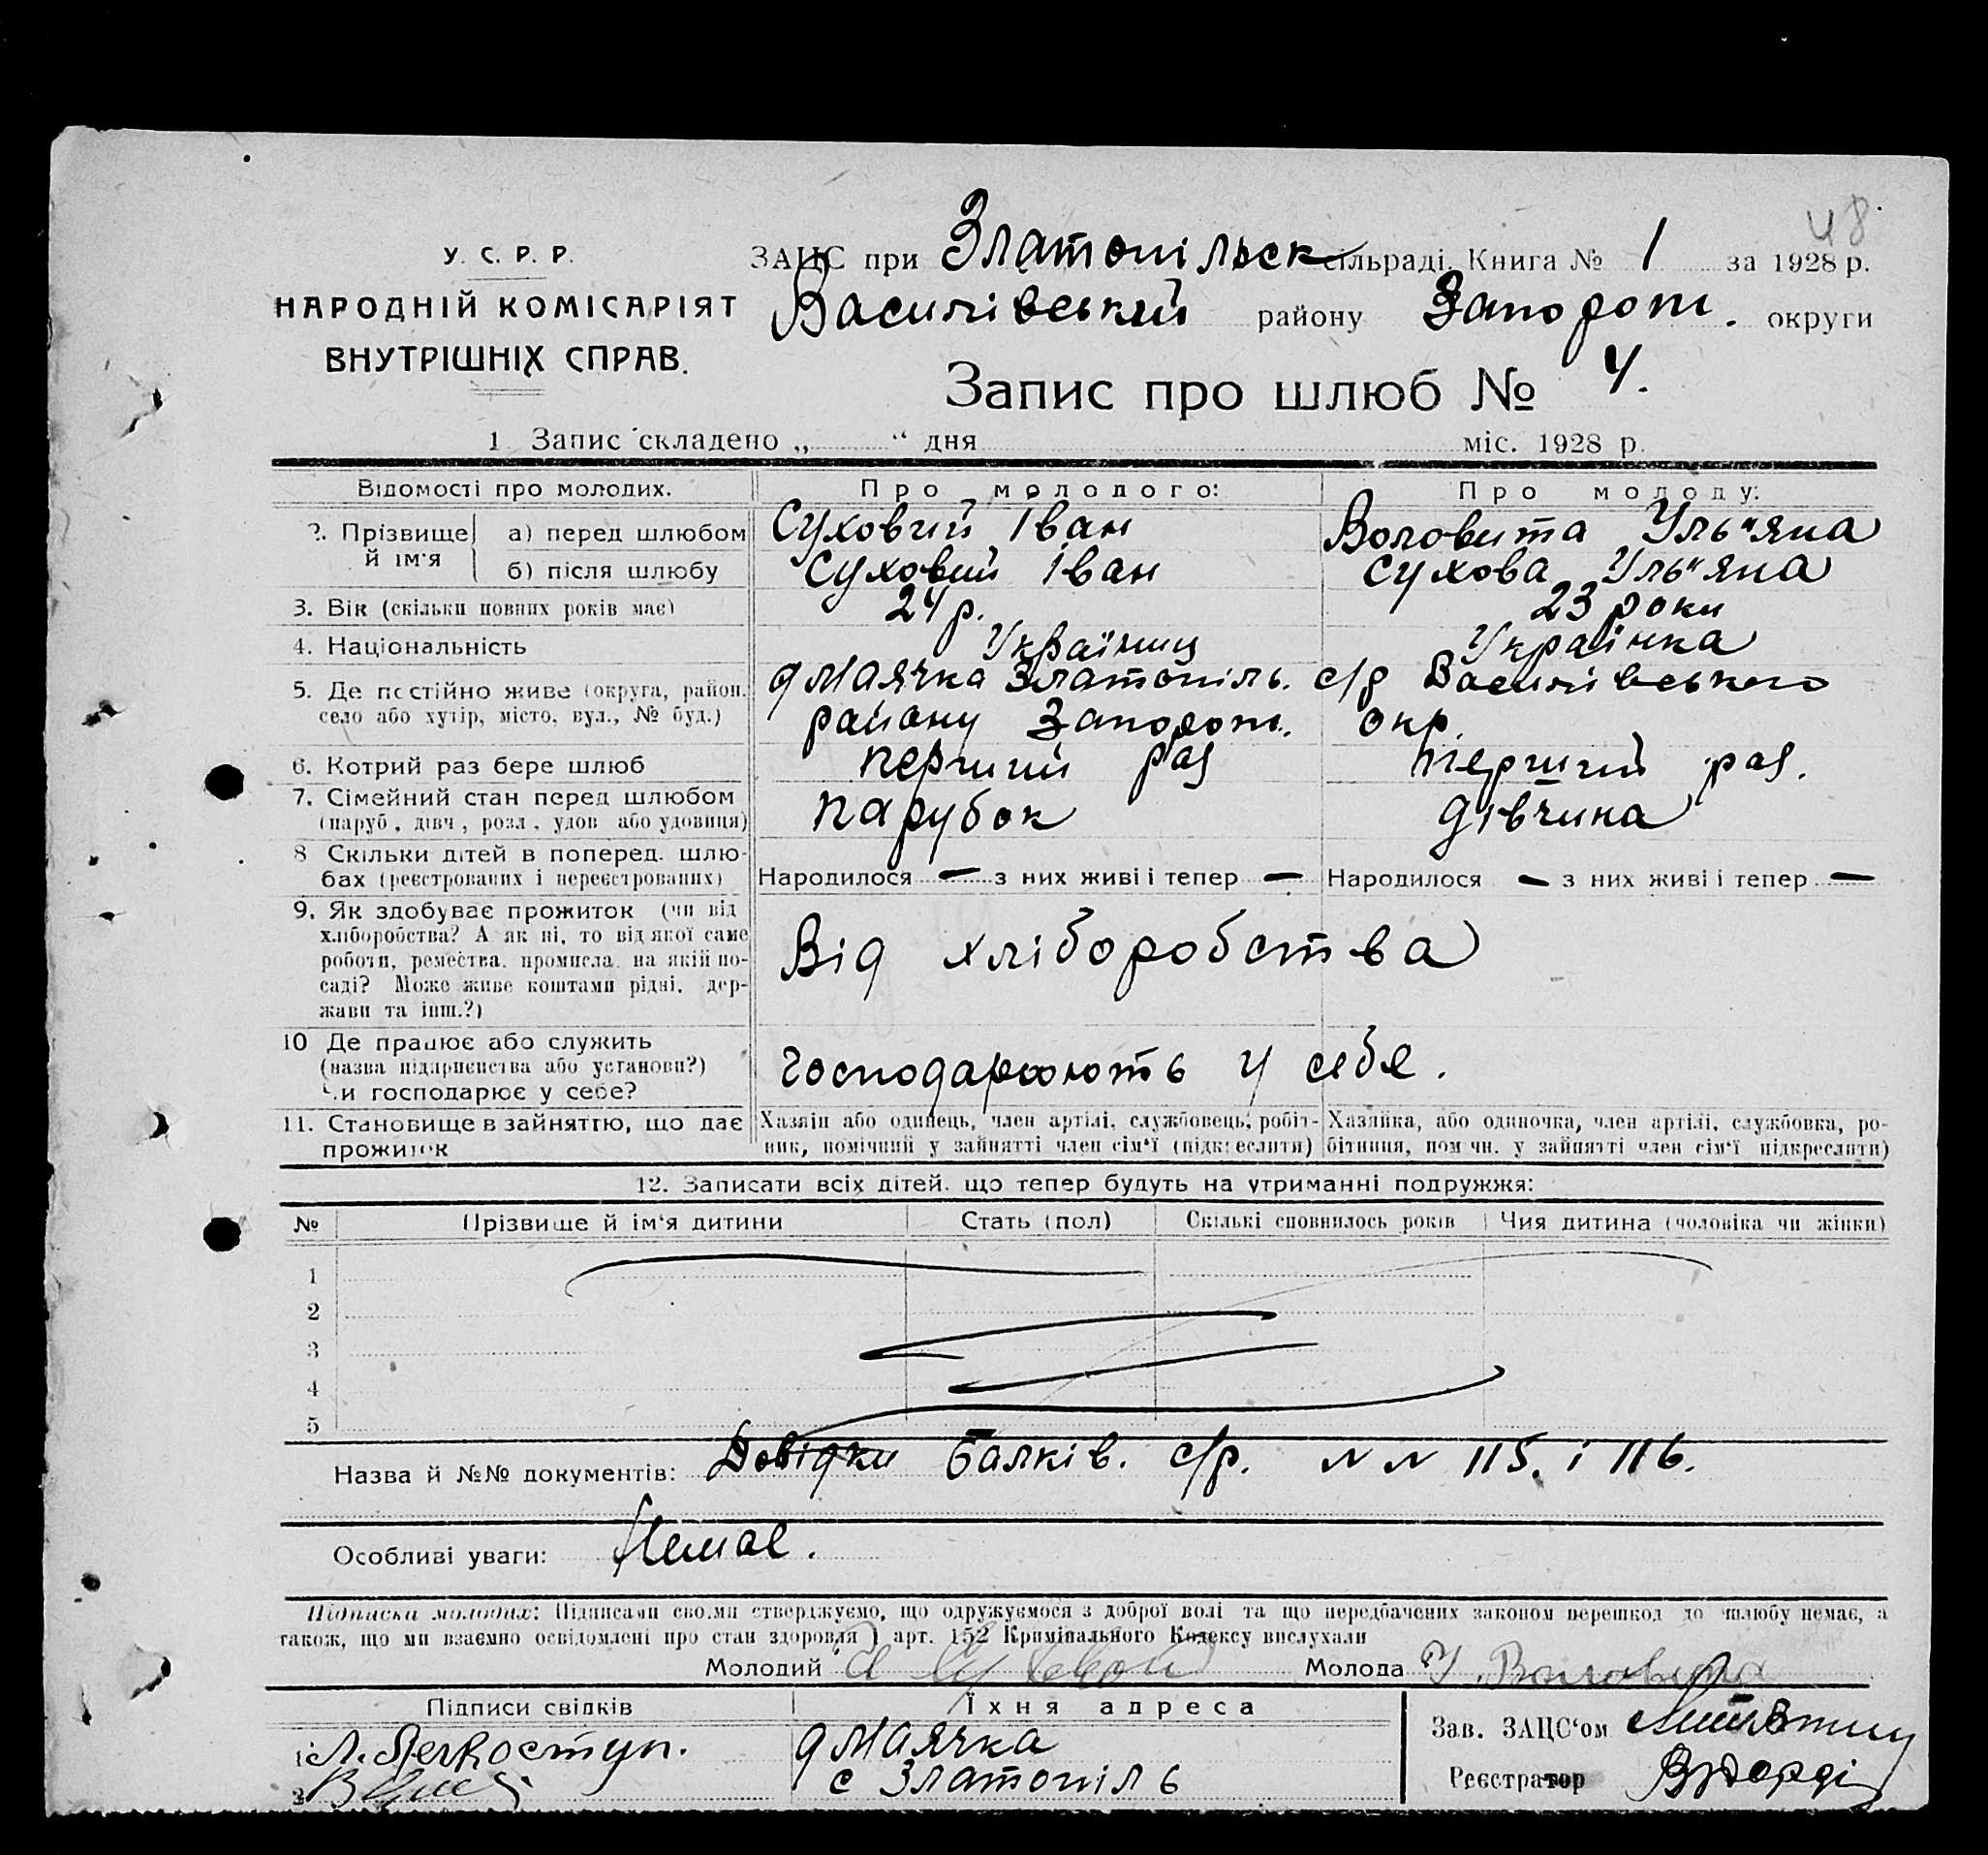 48
У. С. Р. Р.
НАРОДНІЙ КОМІСАРІЯТ
ВНУТРІШНІХ СПРАВ.
ЗАЦС при Златопільск сільраді. Книга № 1 за 1928 р.
Василівський району Запорот. округи
Запис про шлюб № 4.
1 Запис складено „ “ дня міс. 1928 р.
Відомості про молодих. Про молодого: Про молоду:
2. Прізвище й ім'я а) перед шлюбом Суховий Іван Воловита Уль"яна
б) після шлюбу Суховий Іван Сухова Уль"яна
3. Вік (скільки повних років має) 24 р. 23 роки
4. Національність Українец Українка
5. Де постійно живе (округа, район. д Маячка Златопіль. с/р Василівського
село або хутір, місто, вул., № буд.) району Запорот. окр.
6. Котрий раз бере шлюб перший раз перший раз.
7. Сімейний стан перед шлюбом парубок дівчина
(паруб, дівч, розл, удов або удовиця)
8 Скільки дітей в поперед. шлю-
бах (реєстрованих і нереєстрованих) Народилося — з них живі і тепер — Народилося — з них живі і тепер —
9. Як здобуває прожиток (чи від
хліборобства? А як ні, то від якої саме Від хліборобства
роботи, ремества, промисла, на якій по-
саді? Може живе коштами рідні, дер-
жави та інш.?)
10 Де працює або служить
(назва підприємства або установи?) господарюють у себе.
Чи господарює у себе?
11. Становище в зайняттю, що дає Хазяїн або одинець, член артілі, службовець, робіт- Хазяйка, або одиночка, член артілі, службовка, ро-
прожиток ник, помічний у зайнятті член сім'ї (підкреслити) бітниця, помічн. у зайнятті член сім'ї підкреслити)
12. Записати всіх дітей, що тепер будуть на утриманні подружжя:
№ Прізвище й ім'я дитини Стать (пол) Скількі сповнилось років Чия дитина (чоловіка чи жінки)
1
2
3
4
5
Назва й №№ документів: Довідки Балків. с/р. N N 115. і 116.
Особливі уваги: Немає.
Підписка молодих: Підписами своїми стверджуємо, що одружуємося з доброї волі та що передбачених законом перешкод до шлюбу немає, а
також, що ми взаємно освідомлені про стан здоровля і арт. 152 Кримінального Кодексу вислухали
Молодий Молода У. Воловита
Підписи свідків Їхня адреса
Зав. ЗАЦС'ом
1 Л. Легкоступ. д Маячка
2 с Златопіль
Реєстратор